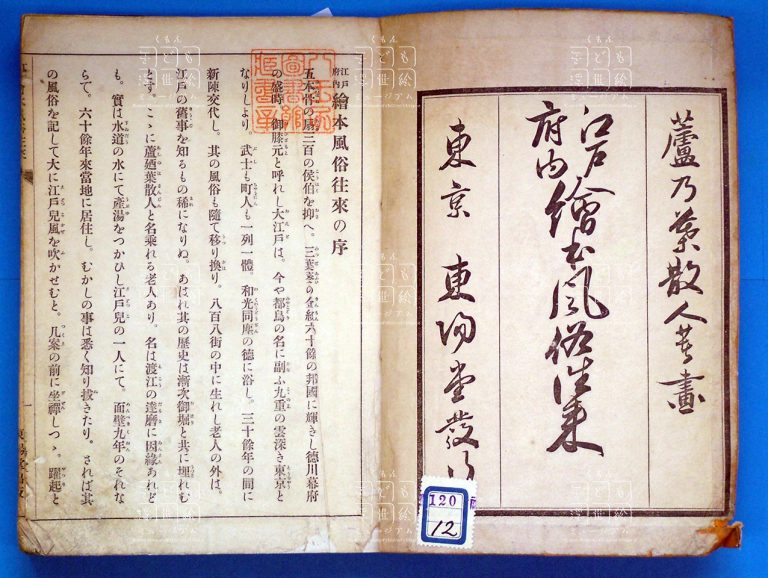 蘆乃葉散人著畫
江戸府内繪本風俗往来
東京 東陽堂發行
120
12
江戸府内繪本風俗往來の序
五本骨の扇三百の侯伯を抑へ。三葉葵の金紋六十餘の邦國に輝きし德川幕府
の盛時。御膝元と呼れし大江戸は。今や都鳥の名に副ふ九重の雲深き東京と
なりしより。武士も町人も一列一體。和光同塵の德に浴し。三十餘年の間に
新陳交代し。其の風俗も隨て移り換り。八百八街の中に生れし老人の外は。
江戸の舊事を知るもの稀になりぬ。あはれ其の歴史は漸次御堀と共に埋れむ
とす。こゝに蘆廼葉散人と名乘れる老人あり。名は渡江の達磨に因緣あれど
も。實は水道の水にて產湯をつかひし江戸兒の一人にて。面壁九年のそれな
らで。六十餘年來當地に居住し。むかしの事は悉く知り拔きたり。されば其
の風俗を記して大に江戸兒風を吹かせむと。几案の前に坐禪しつゝ。躍起と
一
くもん
子ども浮世絵
ミュージアム